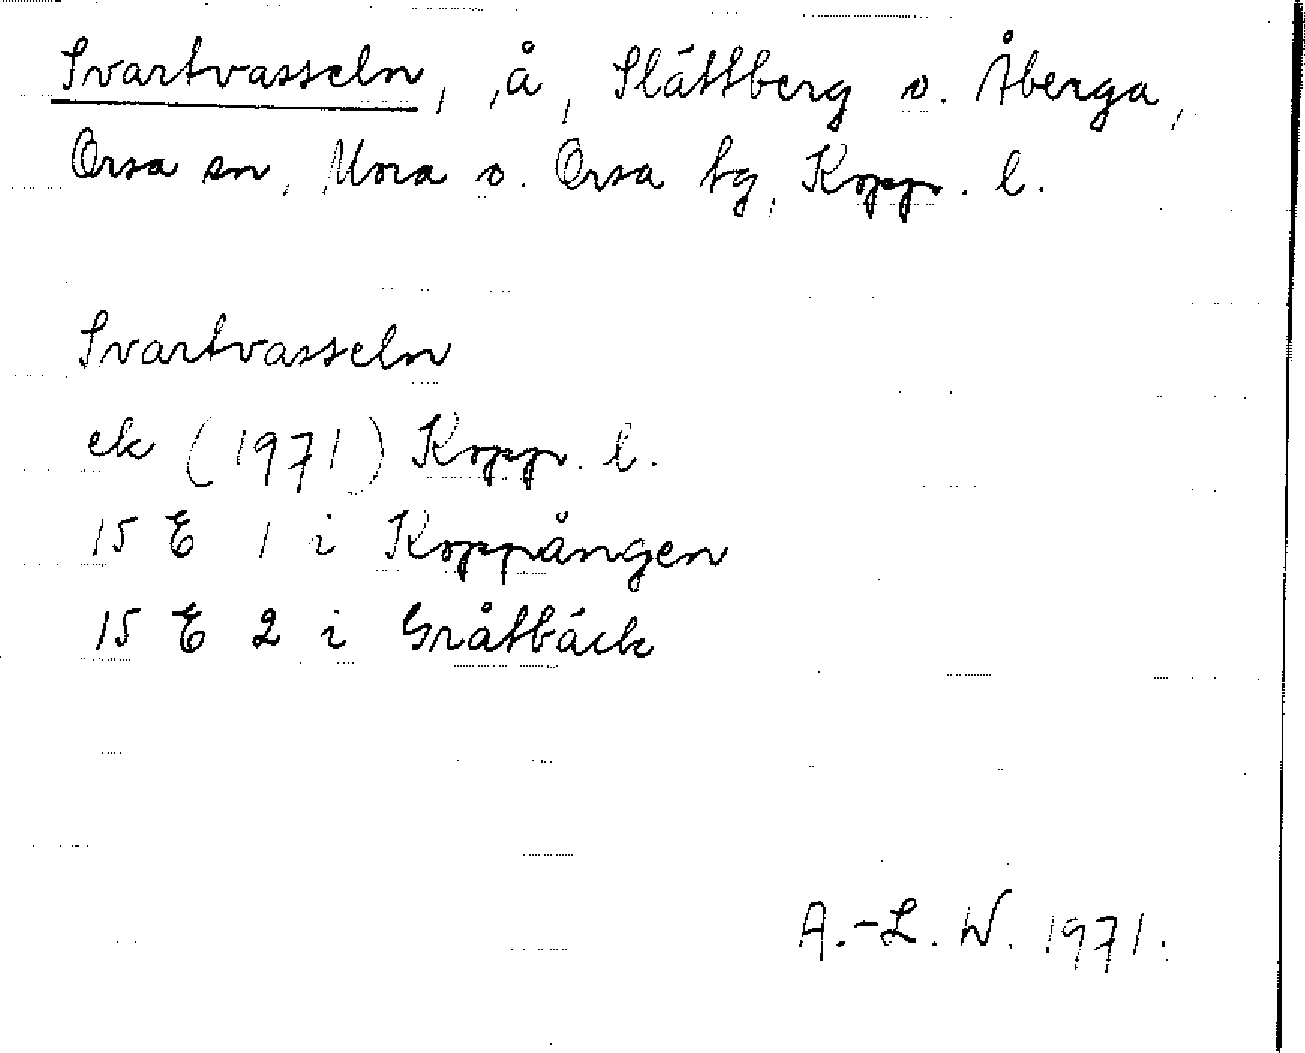 Svartvasseln, å, Slättberg o. Åberga,
Orsa sn, Mora o. Orsa tg, Kopp. l.
Svartvasseln
ek (1971) Kopp. l.
15 E 1 i Koppången
15 E 2 i Gråtbäck
A.-L. W. 1971.